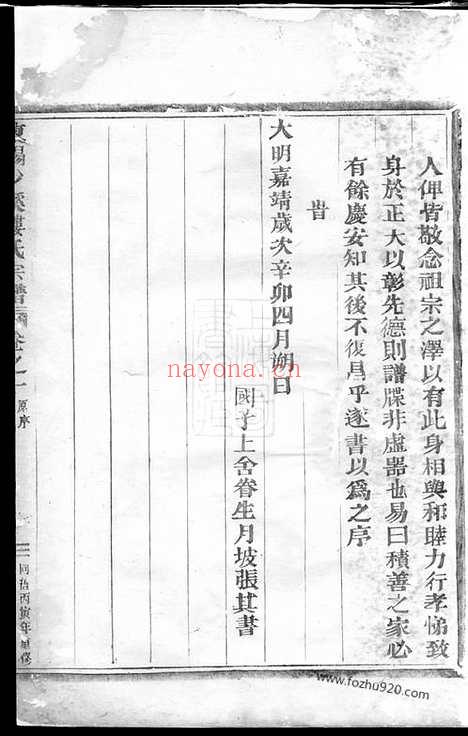 人俾皆敬念祖宗之澤以有此身相與和睦力行孝悌致
身於正大以彰先德則譜牒非虛器也易曰積善之家必
有餘慶安知其後不復昌乎遂書以為之序
旹
大明嘉靖歲次辛卯四月朔日
國子上舍眷生月坡張其書
樓氏宗譜
卷之一
原序
同治丙寅年重修
nayona.cn
www.fozhu920.com